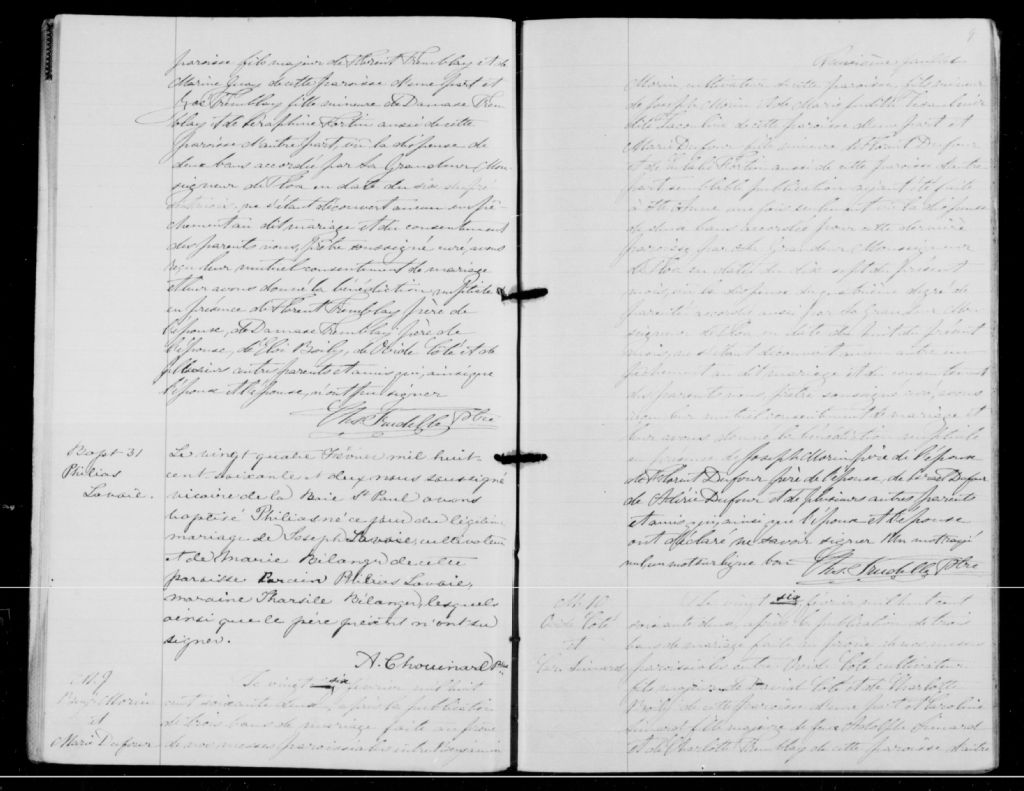 paroisse fils majeur de Florent Tremblay et de
Marine Guay de cette paroisse d'une part et
Zoé Tremblay fille mineure de Damase Trem
blay et de Séraphine Fortin aussi de cette
paroisse d'autre part, vu la dispense de
deux bans accordée par Sa Grandeur Mon
seigneur de Tloa en date du six
ne s'étant découvert aucun empê-
chement au dit mariage et du consentement
des parents nous, prêtre soussigné curé, avons
reçu leur mutuel consentement de mariage
et leur avons donné la bénédiction nuptiale
en présence de Florent Tremblay père de
l'épouse, de Damase Tremblay père de
l'épouse, d'Eloi Boily, de Ovide Coté et de
plusieurs autres parents et amis qui, ainsi que
l'époux et l'épouse, n'ont pu signer
Ths. Trudelle Ptre
Bapt. 31
Philias
Lavoie.
Le vingt quatre Février mil huit-
cent-soixante et deux nous soussigné
vicaire de la Baie St Paul avons
baptisé Philias né ce jour du légitime
mariage de Joseph Lavoie, cultivateur
et de Marie Bilanger de cette
paroisse Parain Philias Lavoie,
maraine Tharsile Bilanger, lesquels
ainsi que le père présent n'ont su
signer.
A. Chouinard Ptre
M. 9
Morin
et
Marie Dufour
Le vingt six février mil huit
cent soixante deux, après la publication
de trois bans de mariage faite au prône
de nos messes paroissiales entre
Morin cultivateur de cette paroisse fils mineur
de Joseph Morin et de Marie Judith
dite Lacouline de cette paroisse d'une part et
Marie Dufour fille mineure de Florent Dufour
et de Fortin aussi de cette paroisse d'autre
part semblable publication ayant été faite
à Ste Anne une fois seulement vu la dispense
de deux bans accordée pour cette dernière
paroisse par Sa Grandeur Monseigneur
de Tloa en date du dix sept du présent
mois, vu la dispense du quatrième degré de
parenté accordée aussi par Sa Grandeur Mon
seigneur de Tloa en date du huit du présent
mois, ne s'étant découvert aucun autre em
pêchement au dit mariage et du consentement
des parents nous, prêtre soussigné curé, avons
reçu leur mutuel consentement de mariage et
leur avons donné la bénédiction nuptiale
en présence de Joseph Morin père de l'époux
de Florent Dufour père de l'épouse, de Dufour
de Dufour et de plusieurs autres parents
et amis qui, ainsi que l'époux et l'épouse
ont déclaré ne savoir signer Un mot rayé
nul un mot sur ligne bon
Ths. Trudelle Ptre
M. 10
Ovide Coté
et
Simard
Le vingt six février mil huit cent
soixante deux, après la publication de trois
bans de mariage faite au prône de nos messes
paroissiales entre Ovide Coté cultivateur
fils majeur de David Coté et de Charlotte
Boily de cette paroisse d'une part et
Simard fille majeure de feu Adolphe Simard
et de Charlotte Tremblay de cette paroisse d'autre